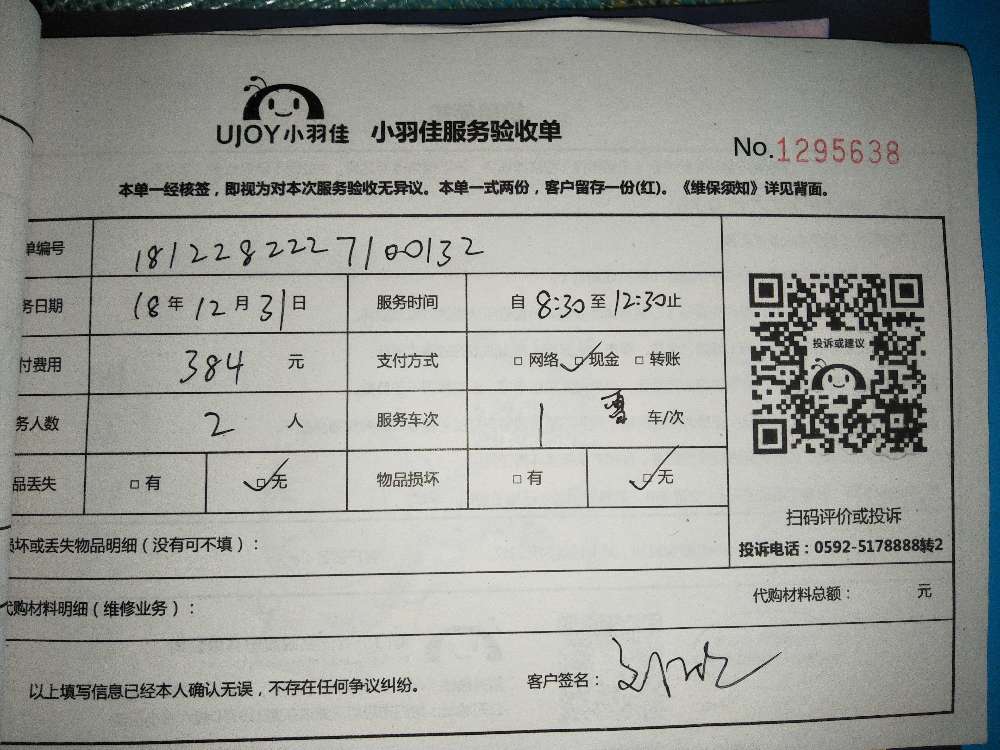 UJOY小羽佳 小羽佳服务验收单
No.1295638
本单一经核签，即视为对本次服务验收无异议。本单一式两份，客户留存一份(红)。《维保须知》详见背面。
单编号 1812282227100132
务日期 18年12月31日 服务时间 自8:30至12:30止
付费用 384 元 支付方式 □网络 □现金 □转账
务人数 2 人 服务车次 1 车/次
品丢失 □有 □无 物品损坏 □有 □无
投诉或建议
扫码评价或投诉
投诉电话：0592-5178888转2
损坏或丢失物品明细（没有可不填）：
代购材料明细（维修业务）：
代购材料总额： 元
以上填写信息已经本人确认无误，不存在任何争议纠纷。 客户签名：